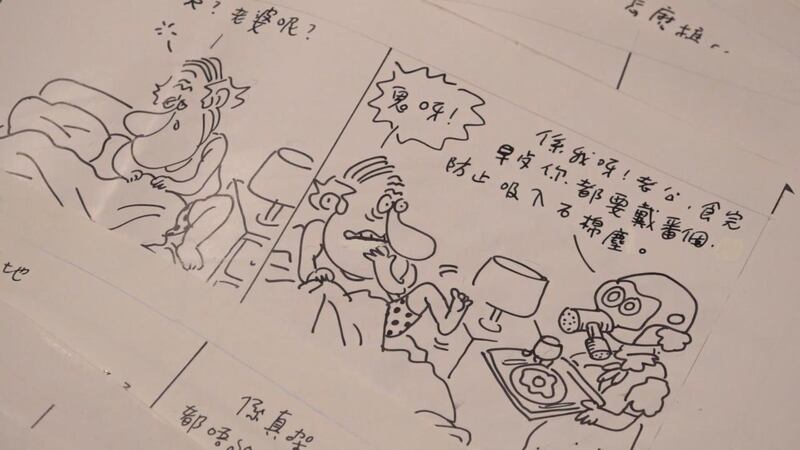 ？老婆呢？
怎麼插..
鬼呀！
係我呀！老公，食完
早晨你都要戴番個
防止吸入石棉塵。
地
係真架
都唔